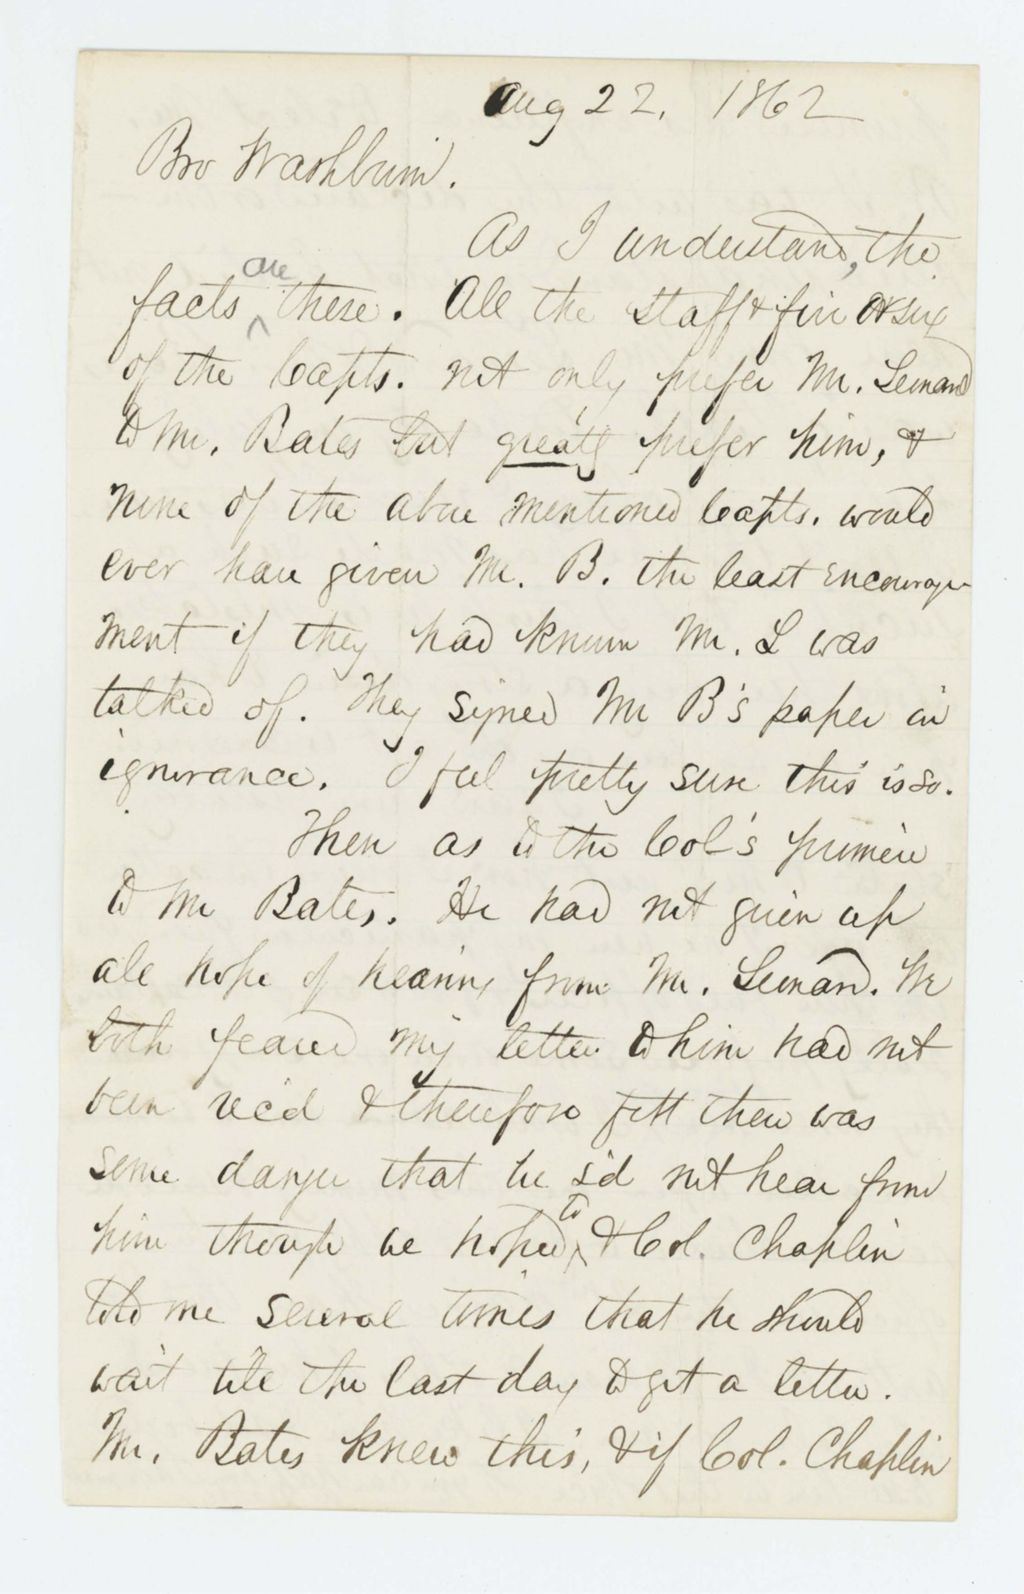 Aug 22, 1862
Bro Washburn.
As I understand, the
facts are these. All the staff & five or six
of the Capts. not only prefer Mr. Leonard
to Mr. Bates but greatly prefer him, &
none of the above mentioned Capts. would
ever have given Mr. B. the least encourage-
ment if they had known Mr. L was
talked of. They signed Mr B's paper in
ignorance. I feel pretty sure this is so.
Then as to the Col's promise
to Mr Bates. He had not given up
all hope of hearing from Mr. Leonard. We
both feared my letter to him had not
been rec'd & therefore felt there was
some danger that he s'd not hear from
him though he hoped to & Col. Chaplin
told me several times that he should
wait till the last day to get a letter.
Mr. Bates knew this, & if Col. Chaplin